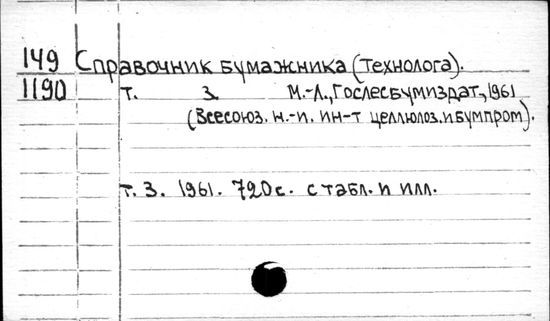 149 Справочник бумажника (технолога).
1190 т. 3. М.-Л., Гослесбумиздат, 1961
(Всесоюз. н.-и. ин-т целлюлоз. и бумпром).
т. 3. 1961. 720с. с табл. и илл.